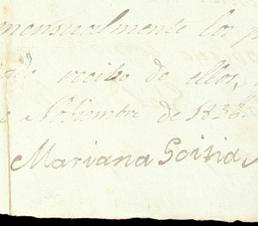 mensualmente los p
recibo de ellos,
Nobiembre de 1838.
Mariana Goitia